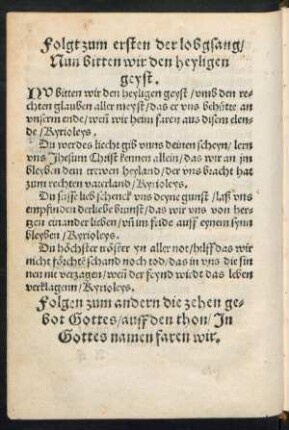 Folgt zum ersten der lobgsang/
Nun bitten wir den heyligen
geyst.
NV bitten wir den heyligen geyst / vmb den re-
chten glauben aller meyst / das er vns behüte an
vnserm ende / wenn wir heim faren aus disem elen-
de / Kyrioleys.
Du werdes liecht gib vnns deinen scheyn / lern
vns Jhesum Christ kennen allein / das wir an jm
bleyben dem trewen heyland / der vns bracht hat
zum rechten vaterland / Kyrioleys.
Du süsse lieb schenck vns deyne gunst / laß vns
empfinden der liebe brunst / das wir vns von her-
tzen einander lieben / vñ im fride auff eynem synn
bleyben / Kyrioleys.
Du höchster tröster yn aller not / hilff das wir
nicht förcht schand noch tod / das in vns die sin
nen nit verzagen / weñ der feynd wirdt das leben
verklagenn / Kyrioleys.
Folgen zum andern die zehen ge-
bot Gottes / auff den thon / In
Gottes namen faren wir.